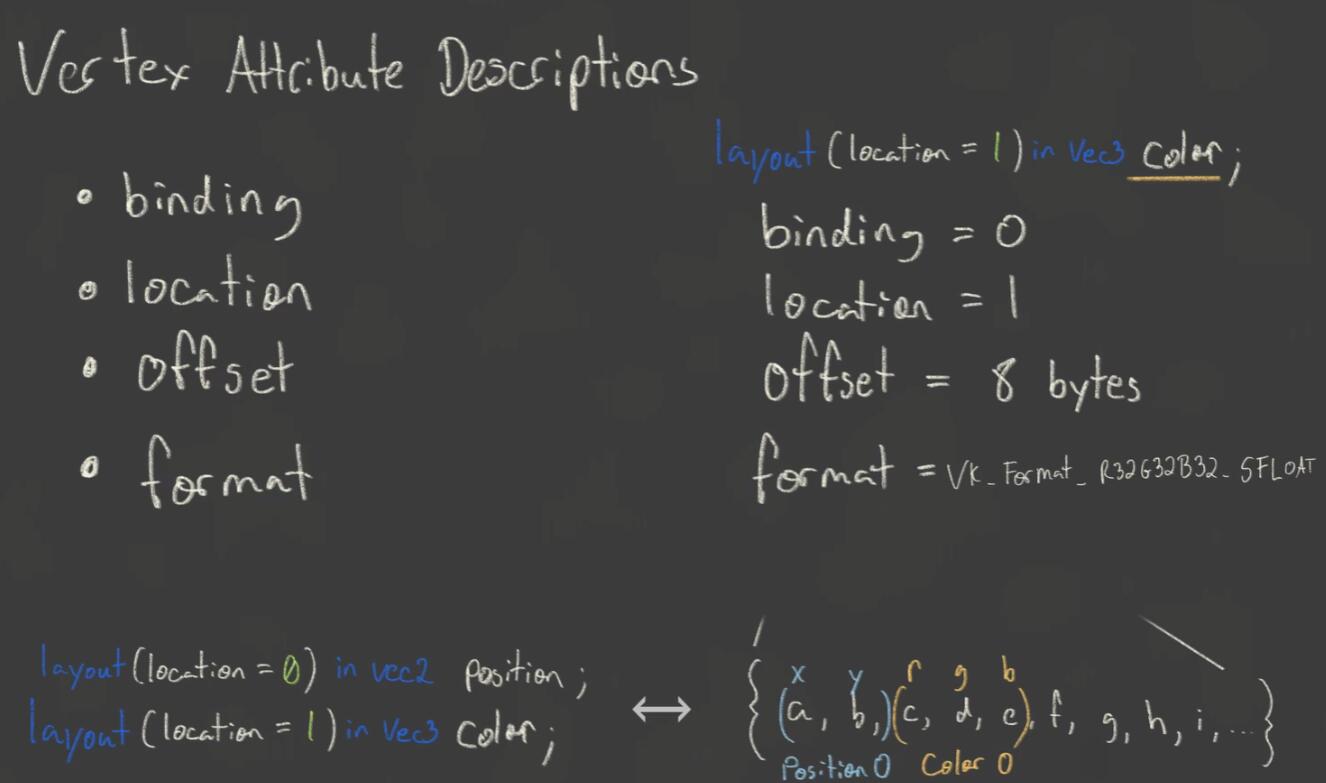 Vertex Attribute Descriptions
• binding
• location
• offset
• format
layout (location = 1) in vec3 color;
binding = 0
location = 1
offset = 8 bytes
format = VK_Format_R32G32B32_SFLOAT
layout (location = 0) in vec2 position;
layout (location = 1) in vec3 color;
↔
x y r g b
{ (a, b,)(c, d, e), f, g, h, i, ... }
Position 0 Color 0